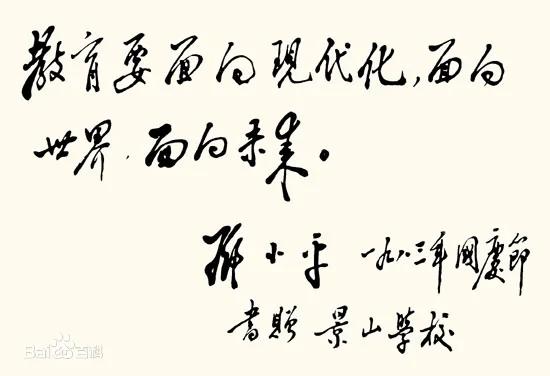 教育要面向現代化，面向
世界，面向未来。
邓小平 一九八三年國慶節
書贈 景山學校
Bai百科